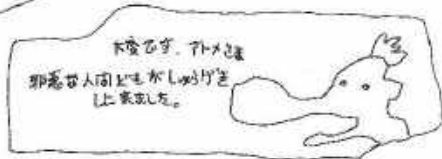 大変です、アトメさま
邪悪な人間どもがしゅうげき
しに来ました。